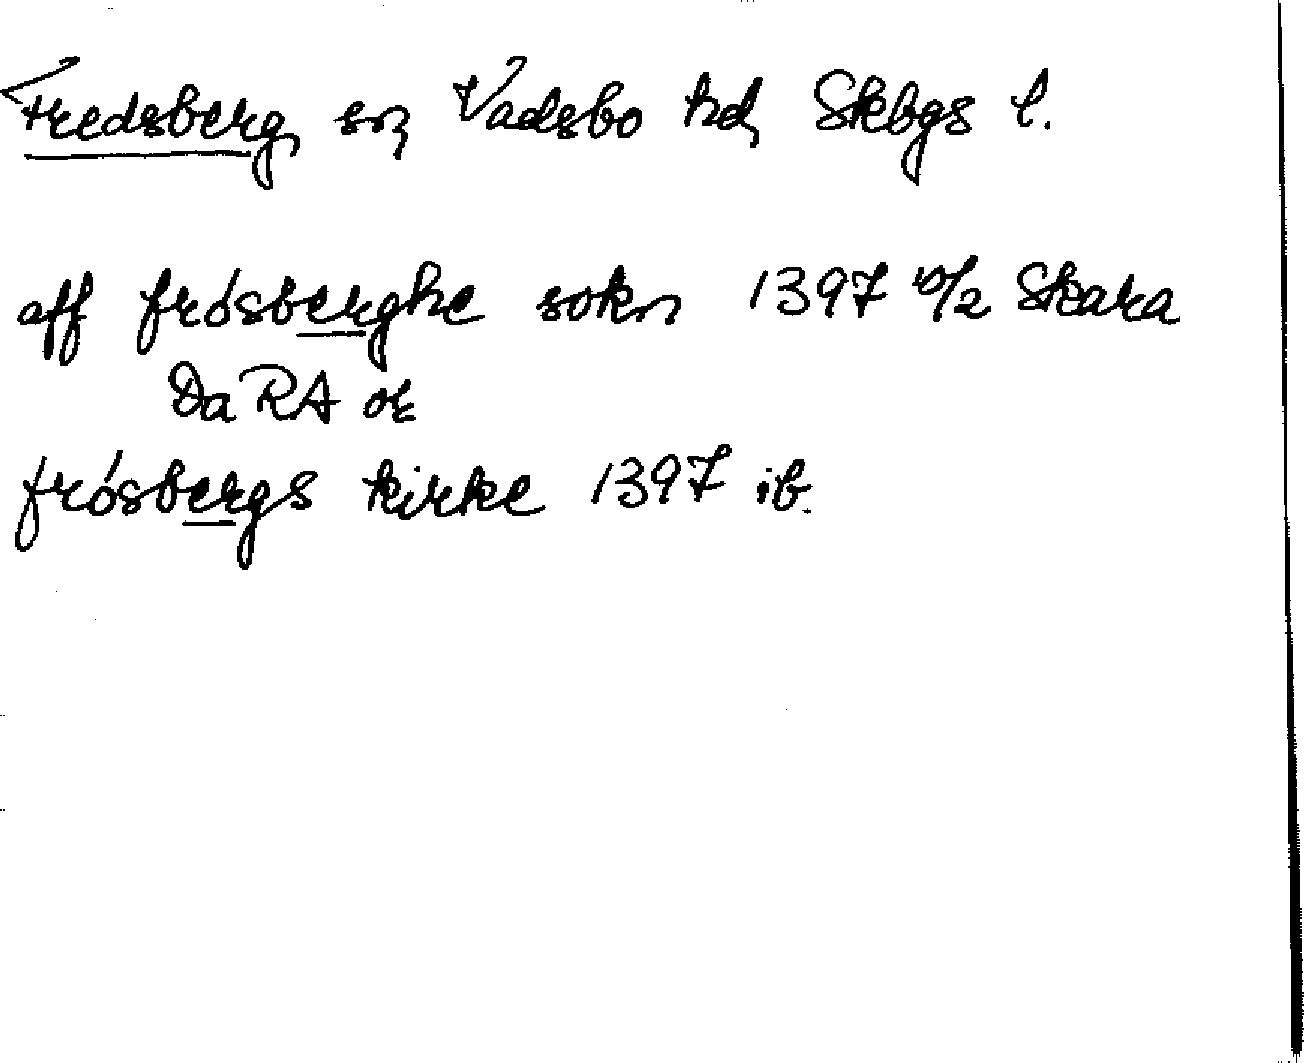 Fredsberg, sn, Vadsbo hd, Skbgs l.
aff frósberghe sokn 1397 10/2 Skara
DaRA or
frósbergs kirke 1397 ib.